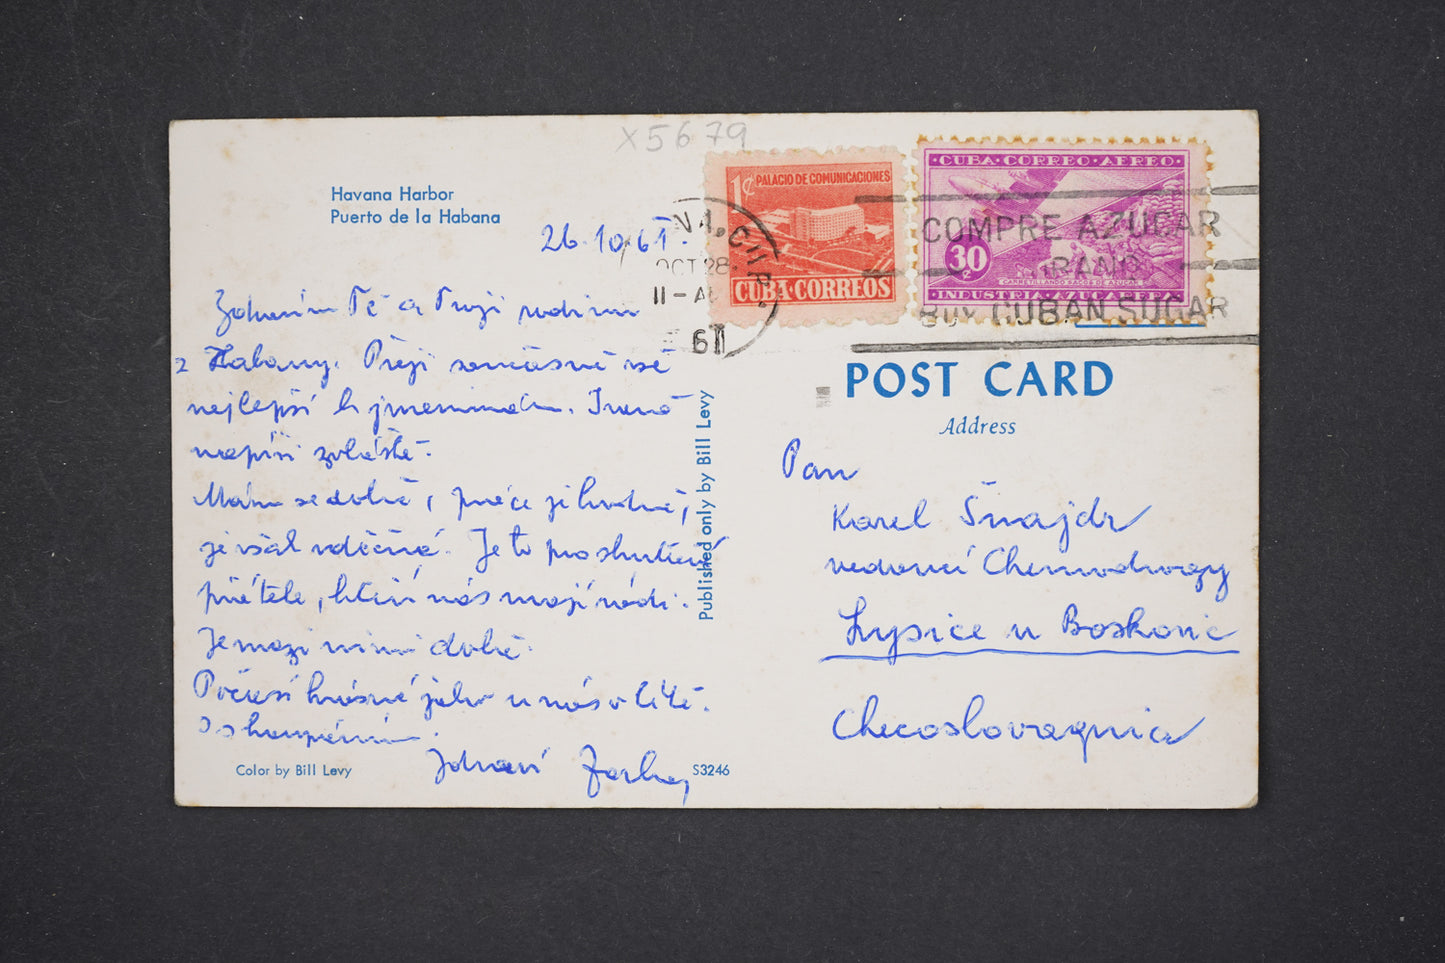 X5679
Havana Harbor
Puerto de la Habana
26.10.61.
Zdravím Tě a Tvoji rodinu
z Habany. Přeji současně vše
nejlepší k jmeninám. Ivaně
napíši zvláště.
Mám se dobře, práce je hodně,
je však vděčná. Jsou to skuteční
přátele, kteří nás mají rádi.
Je mezi nimi dobře.
Počasí krásné jako u nás v létě.
S koupáním.
Zdraví
Color by Bill Levy
S3246
Published only by Bill Levy
1¢ PALACIO DE COMUNICACIONES
CUBA·CORREOS
·CUBA·CORREO·AEREO·
30
¢
CARRETILLANDO SACOS DE AZUCAR
INDUSTRIA AZUCARERA
OCT 28
11-AM
61
COMPRE AZUCAR
BUY CUBAN SUGAR
POST CARD
Address
Pan
Karel Šnajdr
vedoucí Chemodrogy
Lysice u Boskovic
Checoslovaquia